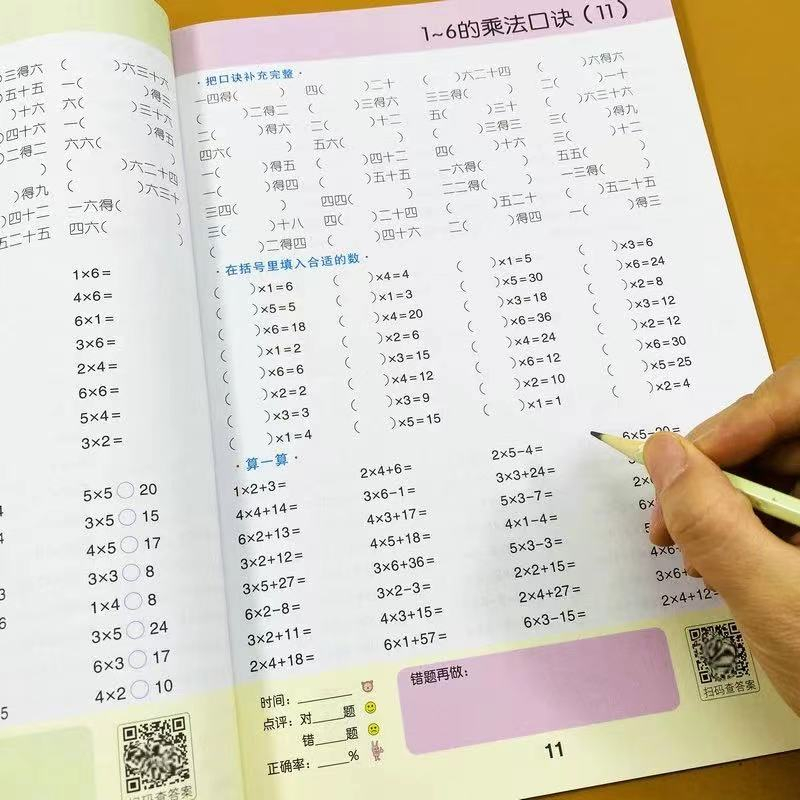 )三得六 ( )六三十六
)五十五 一( )得三
)十六 六( )三十六
)四十六 一( )得五
)二得二 六六( )
) ( )六二十四
)得九 ( )六三十
)四十二 一六得( )
五二十五 四六( )
1×6=
4×6=
6×1=
3×6=
2×4=
6×6=
5×4=
3×2=
5×5○20
3×5○15
4×5○17
3×3○8
1×4○8
3×5○24
6×3○17
4×2○10
扫码查答案
1~6的乘法口诀（11）
·把口诀补充完整·
一四得( ) 四( )二十 ( )六二十四 ( )六得六
( )二得二 ( )三得六 三三得( ) 二( )一十
二( )得六 二( )十二 五( )三十 ( )六三十六
四六( ) 五六( ) ( )三得三 三( )得九
一( )得五 ( )四十二 四( )十六 三( )十二
一( )得四 ( )五十五 一六得( ) 五五( )
三四( ) 四四( ) 二二得( ) 一三得( )
三( )十八 四( )二十四 ( )五二十 ( )五二十五
( )二得四 ( )四十六 二( )得四 一( )得三
·在括号里填入合适的数·
( )×1=6 ( )×4=4 ( )×1=5 ( )×3=6
( )×5=5 ( )×1=3 ( )×5=30 ( )×6=24
( )×6=18 ( )×4=20 ( )×3=18 ( )×2=8
( )×1=2 ( )×2=6 ( )×6=36 ( )×3=12
( )×6=6 ( )×3=15 ( )×4=24 ( )×2=12
( )×2=2 ( )×4=12 ( )×6=12 ( )×6=30
( )×3=3 ( )×3=9 ( )×2=10 ( )×5=25
( )×1=4 ( )×5=15 ( )×1=1 ( )×2=4
·算一算·
1×2+3= 2×4+6= 2×5-4= 6×5-20=
4×4+14= 3×6-1= 3×3+24=
6×2+13= 4×3+17= 5×3-7=
3×2+12= 4×5+18= 4×1-4=
3×5+27= 3×6+36= 5×3-3=
6×2-8= 3×2-3= 2×2+15=
3×2+11= 4×3+15= 2×4+27=
2×4+18= 6×1+57= 6×3-15= 2×4+12=
时间：
点评：对 题
错 题
正确率： %
错题再做：
扫码查答案
11